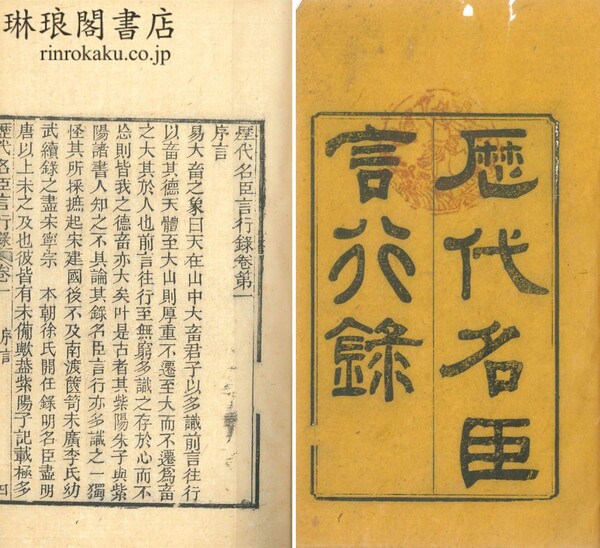 琳琅閣書店
rinrokaku.co.jp
歷代名臣言行錄卷第一
序言
易大畜之象曰天在山中大畜君子以多識前言往行
以畜其德天體至大山則厚重不遷至大而不遷爲畜
之大其於人也前言往行至無窮多識之存於心而不
忘則皆我之德畜亦大矣叶是古者其紫陽朱子與紫
陽諸書人知之不具論其錄名臣言行亦多識之一獨
怪其所採摭起宋建國後不及南渡篋笥未廣李氏幼
武續錄之盡宋寧宗 本朝徐氏開任錄明名臣盡明
唐以上未之及也彼皆有未備歟葢紫陽子記載極多
歷代名臣言行錄 卷一 序言 四
歷代名臣
言行錄